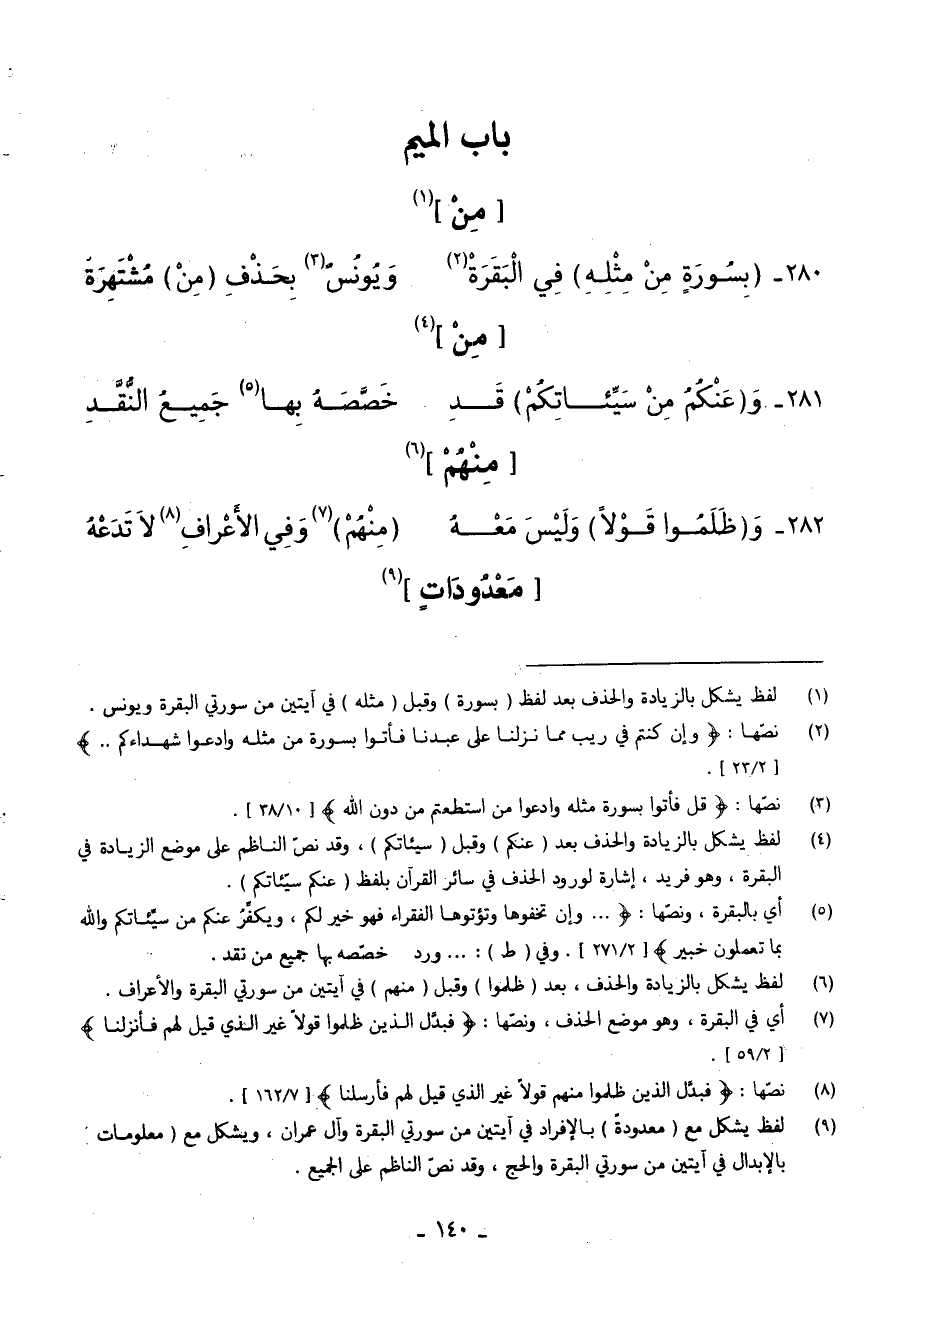 باب الميم
[ مِنْ ](١)
٢٨٠- (بِسُورَةٍ مِنْ مِثْلِهِ) فِي الْبَقَرَةْ(٢) وَيُونُسٌ(٣) بِحَذْفِ (مِنْ) مُشْتَهِرَةْ
[ مِنْ ](٤)
٢٨١- وَ(عَنْكُمُ مِنْ سَيِّئَاتِكُمْ) قَدِ خَصَّصَهُ بِهَا(٥) جَمِيعُ النُّقَّدِ
[ مِنْهُمْ ](٦)
٢٨٢- وَ(ظَلَمُوا قَوْلاً) وَلَيْسَ مَعْهُ (مِنْهُمْ)(٧) وَفِي الأَعْرافِ(٨) لاَ تَدَعْهُ
[ مَعْدُودَاتٍ ](٩)
(١) لفظ يشكل بالزيادة والحذف بعد لفظ ( بسورة ) وقبل ( مثله ) في آيتين من سورتي البقرة ويونس .
(٢) نصّها : ﴿ وإن كنتم في ريب مما نزلنا على عبدنا فأتوا بسورة من مثله وادعوا شهداءكم .. ﴾
[ ٢٣/٢ ] .
(٣) نصّها : ﴿ قل فأتوا بسورة مثله وادعوا من استطعتم من دون الله ﴾ [ ٣٨/١٠ ] .
(٤) لفظ يشكل بالزيادة والحذف بعد ( عنكم ) وقبل ( سيئاتكم ) ، وقد نصّ الناظم على موضع الزيادة في
البقرة ، وهو فريد ، إشارة لورود الحذف في سائر القرآن بلفظ ( عنكم سيّئاتكم ) .
(٥) أي بالبقرة ، ونصّها : ﴿ ... وإن تخفوها وتؤتوها الفقراء فهو خير لكم ، ويكفِّرُ عنكم من سيِّئاتكم والله
بما تعملون خبير ﴾ [ ٢٧١/٢ ] . وفي ( ط ) : ... ورد خصّصه بها جميع من نقد .
(٦) لفظ يشكل بالزيادة والحذف ، بعد ( ظلموا ) وقبل ( منهم ) في آيتين من سورتي البقرة والأعراف .
(٧) أي في البقرة ، وهو موضع الحذف ، ونصّها : ﴿ فبدّل الذين ظلموا قولاً غير الذي قيل لهم فأنزلنا ﴾
[ ٥٩/٢ ] .
(٨) نصّها : ﴿ فبدّل الذين ظلموا منهم قولاً غير الذي قيل لهم فأرسلنا ﴾ [ ١٦٢/٧ ] .
(٩) لفظ يشكل مع ( معدودةً ) بالإفراد في آيتين من سورتي البقرة وآل عمران ، ويشكل مع ( معلومات
بالإبدال في آيتين من سورتي البقرة والحج ، وقد نصّ الناظم على الجميع .
- ١٤٠ -